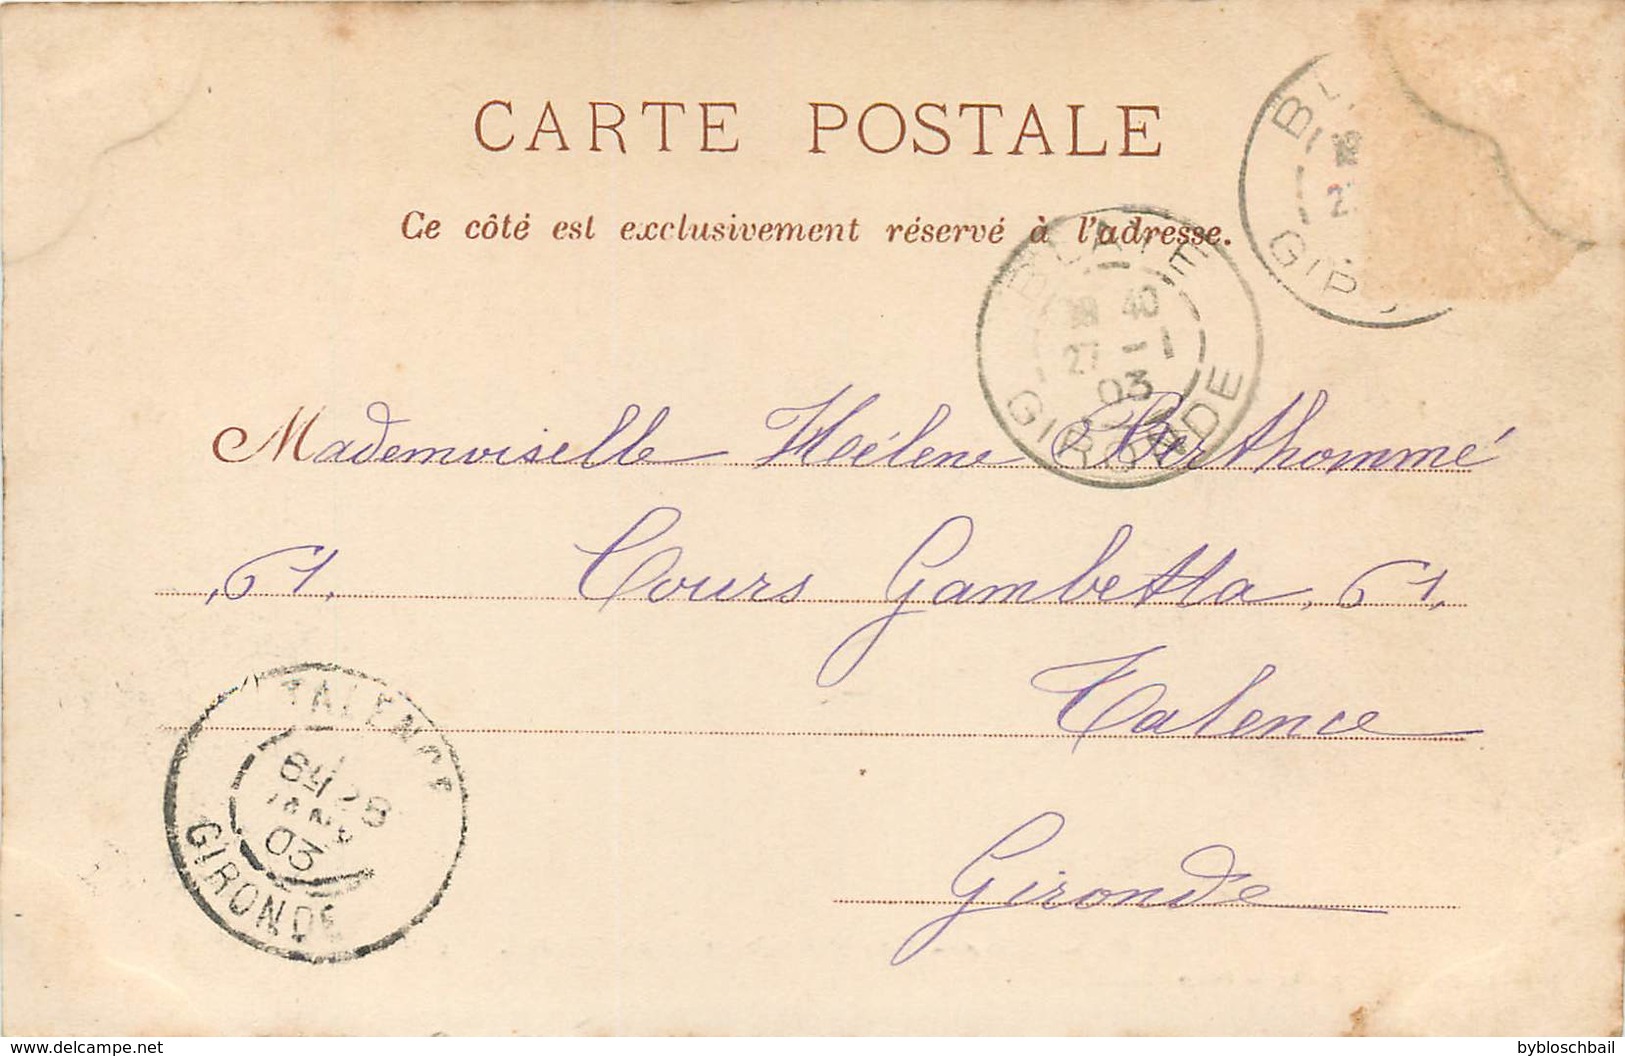 CARTE POSTALE
Ce côté est exclusivement réservé à l'adresse.
GIRONDE
18 40
27 - 1
03
GIRONDE
Mademoiselle Hélène Berthommé
61. Cours Gambetta. 61.
Talence
TALENCE
28
JANV
03
GIRONDE
Gironde
www.delcampe.net
bybloschbail